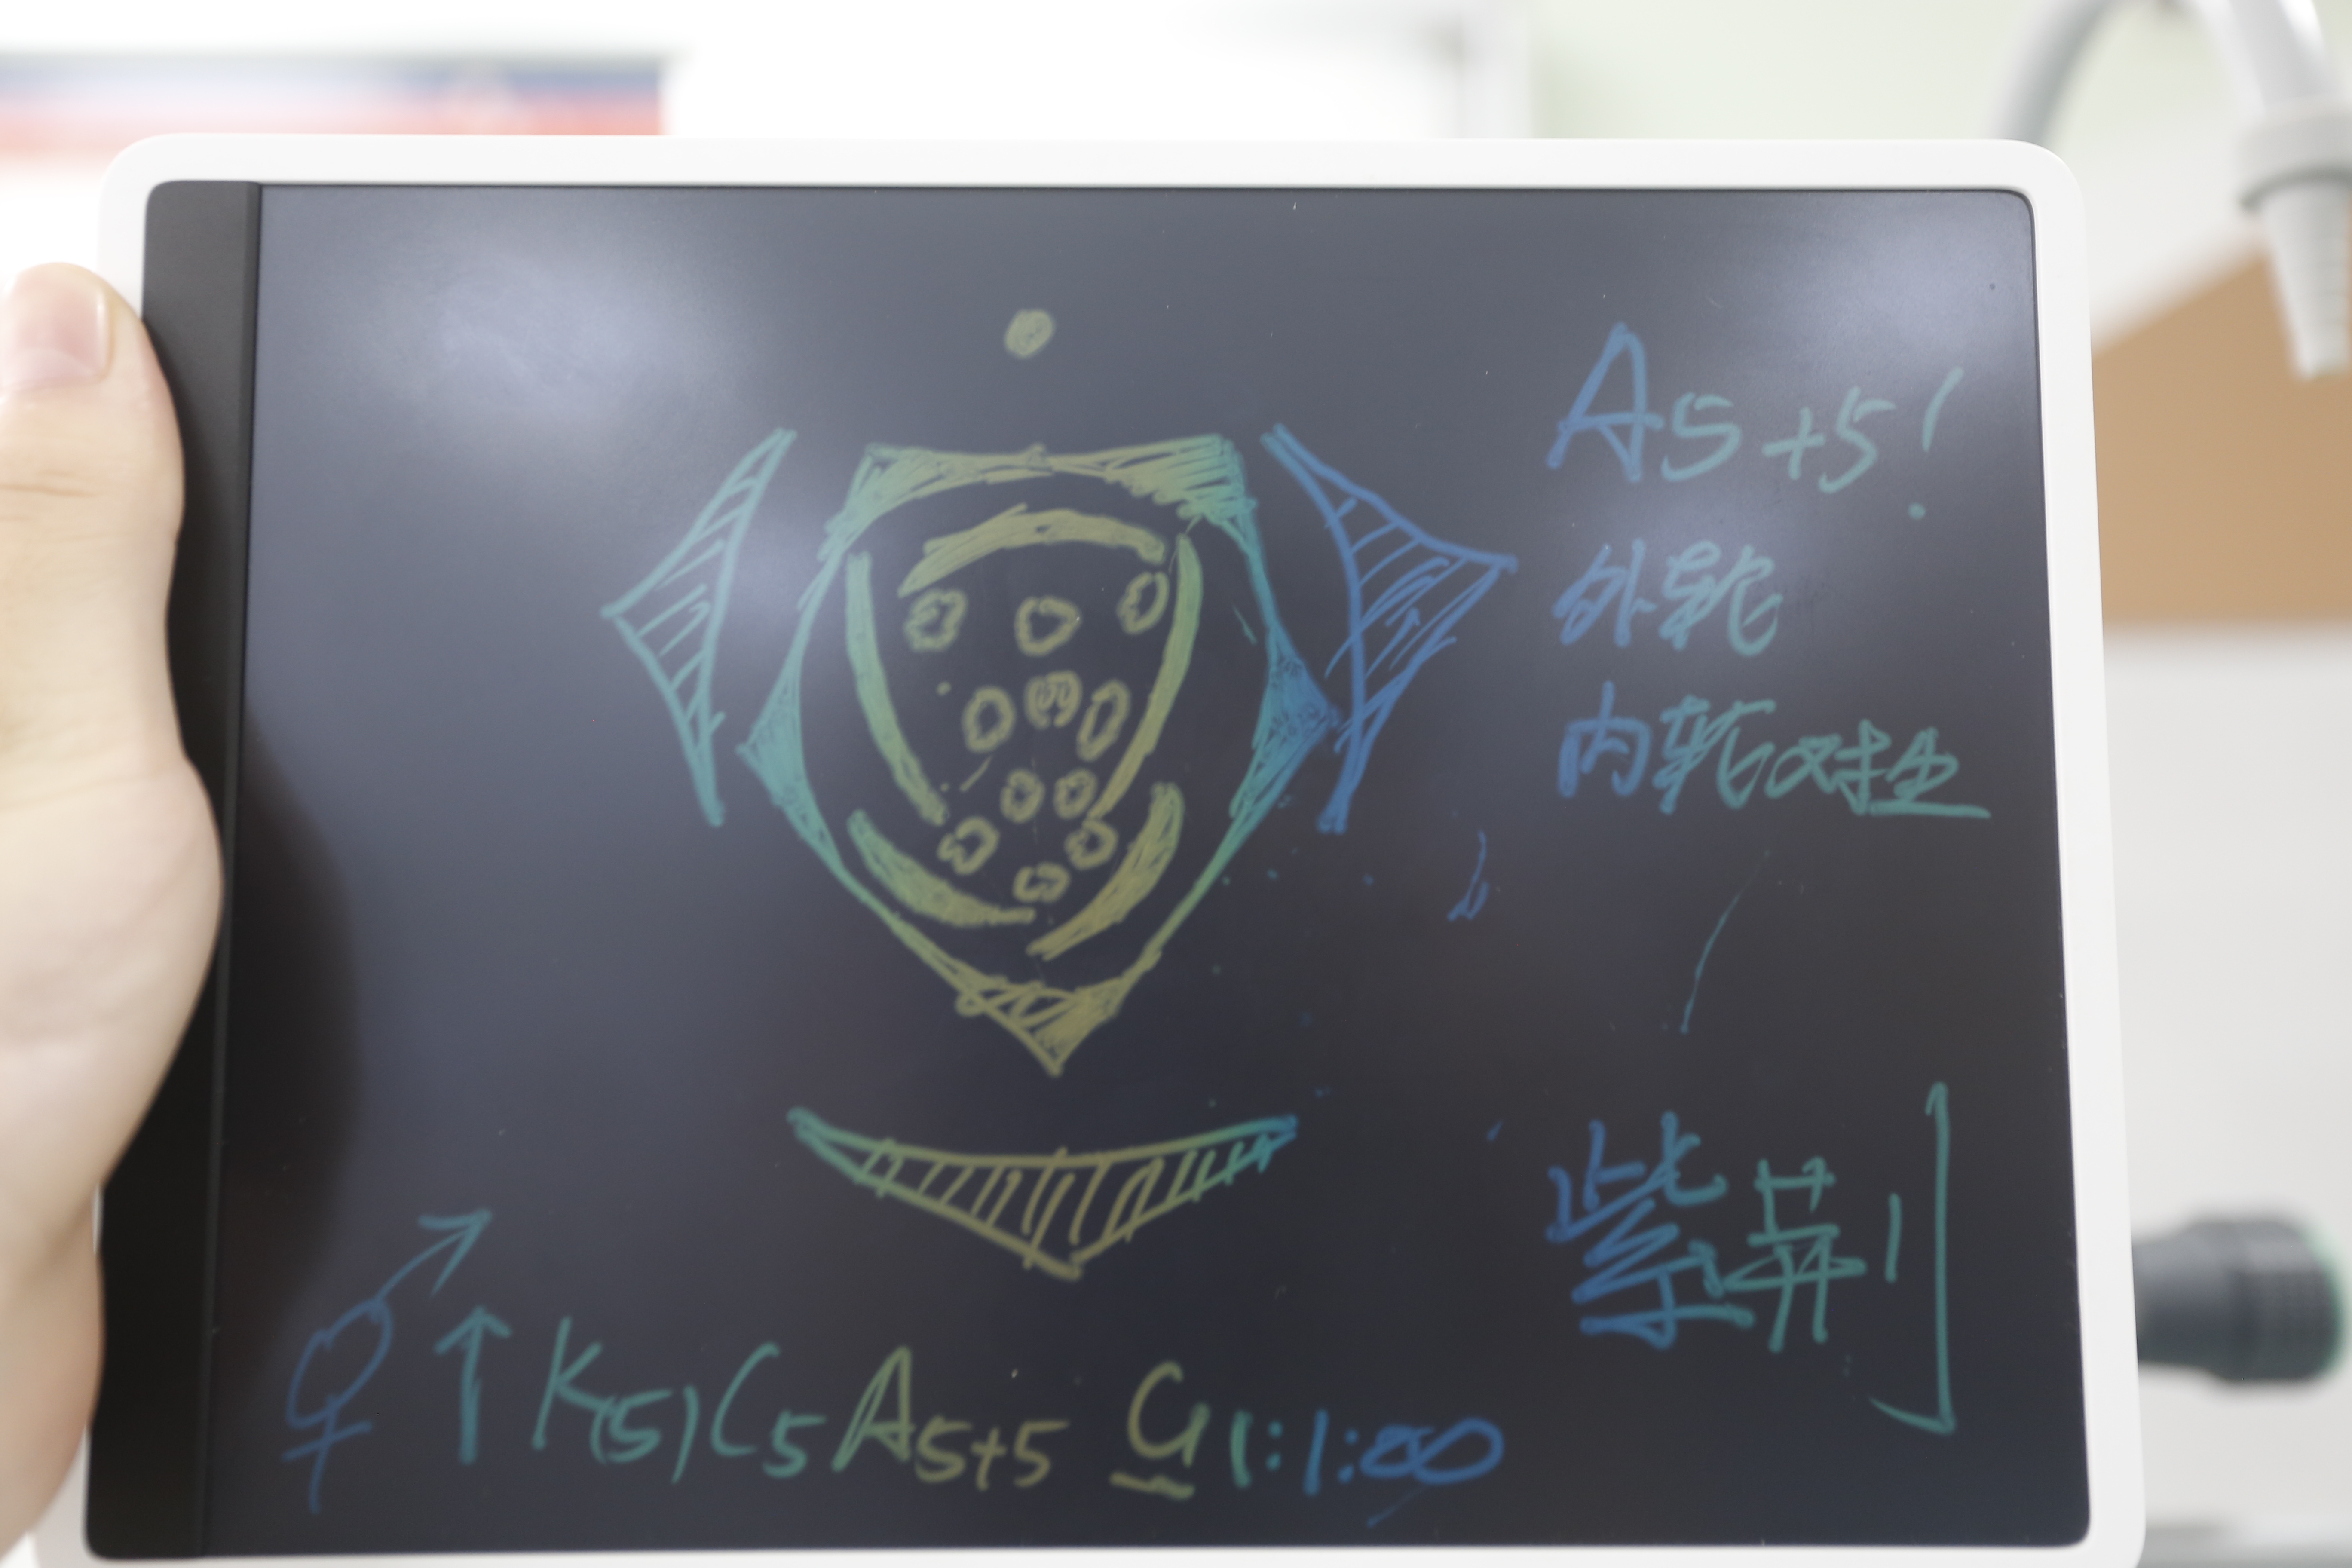 A5+5!
外轮
内轮对生
紫荆
⚥↑K(5)C5A5+5 G1:1:∞